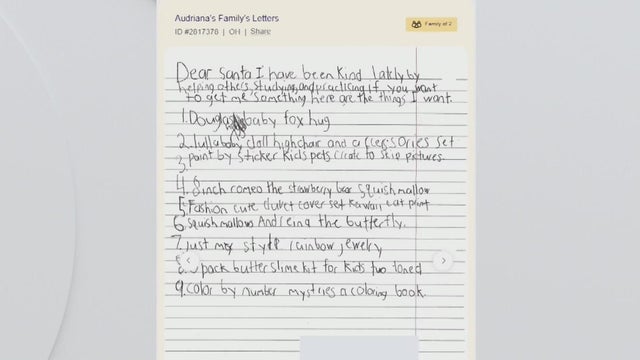 Audriana's Family's Letters
ID #2617376 | OH | Share
Family of 2
Dear Santa I have been kind lately by
helping others studying and practicing if you want
to get me something here are the things I want.
1. Douglas baby fox hug
2. lullababy doll highchair and accessories set
3. paint by sticker kids pets create 10 pictures.
4. 8 inch romeo the strawberry bear squishmallow
5. Fashion cute duvet cover set Kawaii cat print
6. squishmallow Andreina the butterfly.
7. just my style rainbow jewelry
pack butter slime kit for kids two toned
9. color by number mysteries a coloring book.